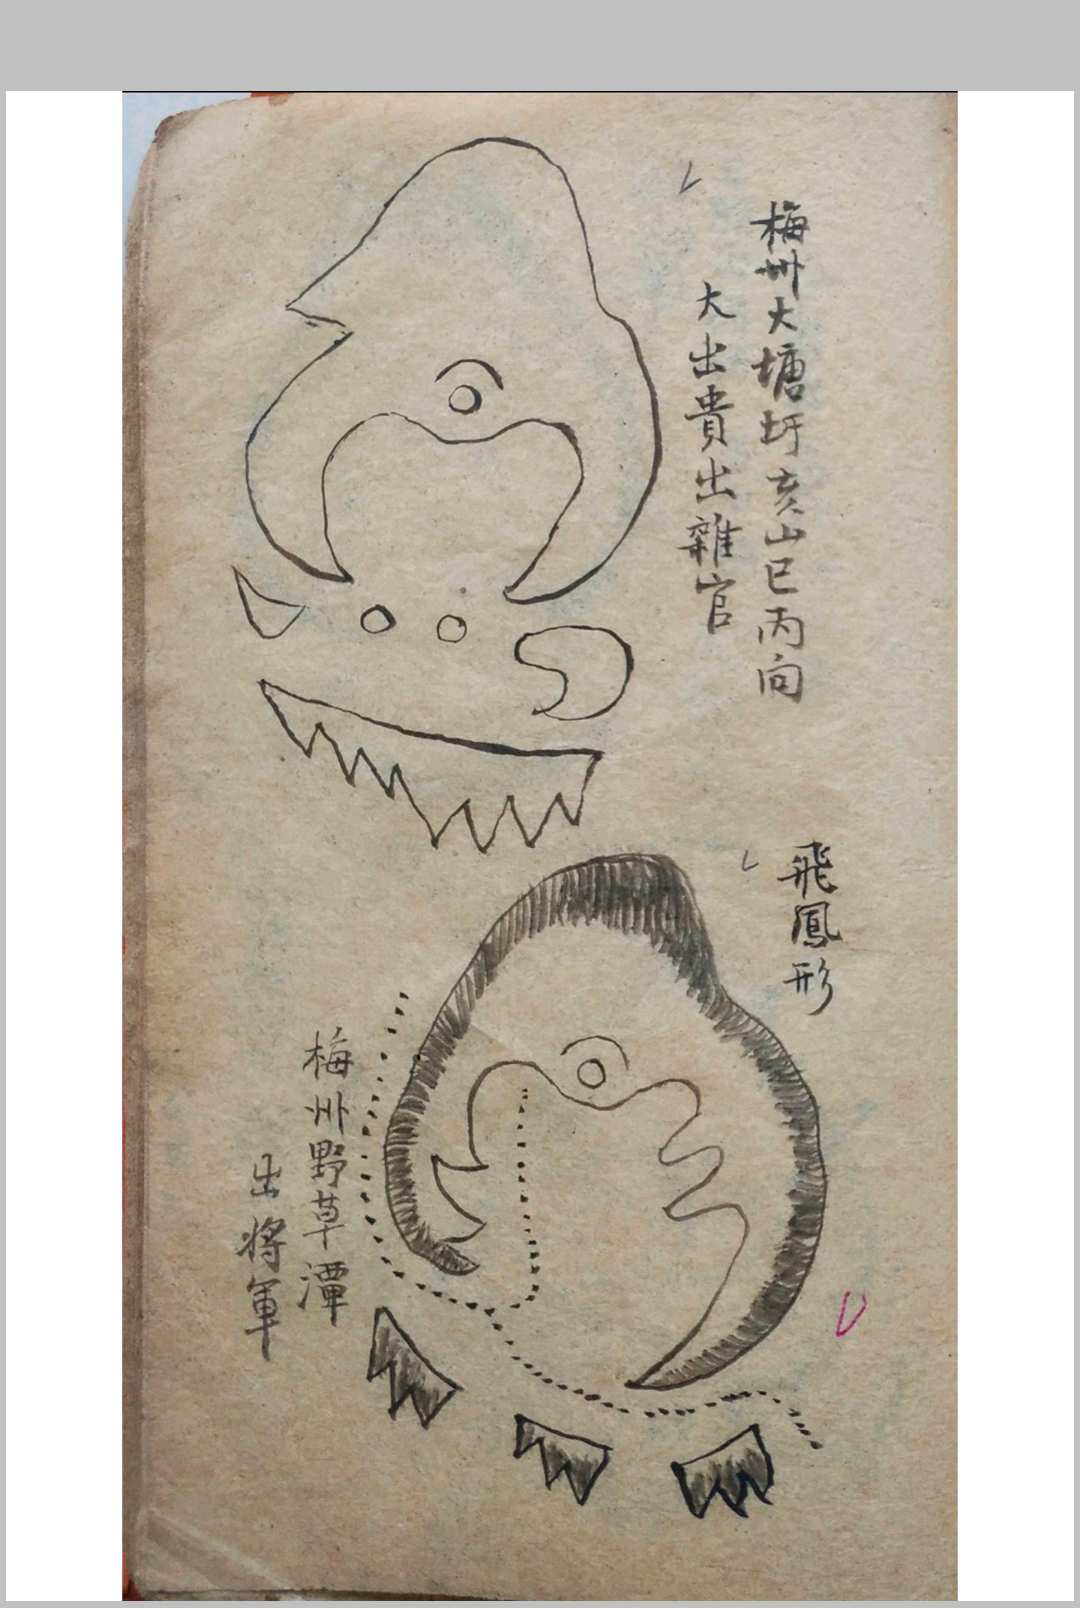 梅州大塘圩亥山巳丙向
大出貴出雜官
飛鳳形
梅州野草潭
出将軍